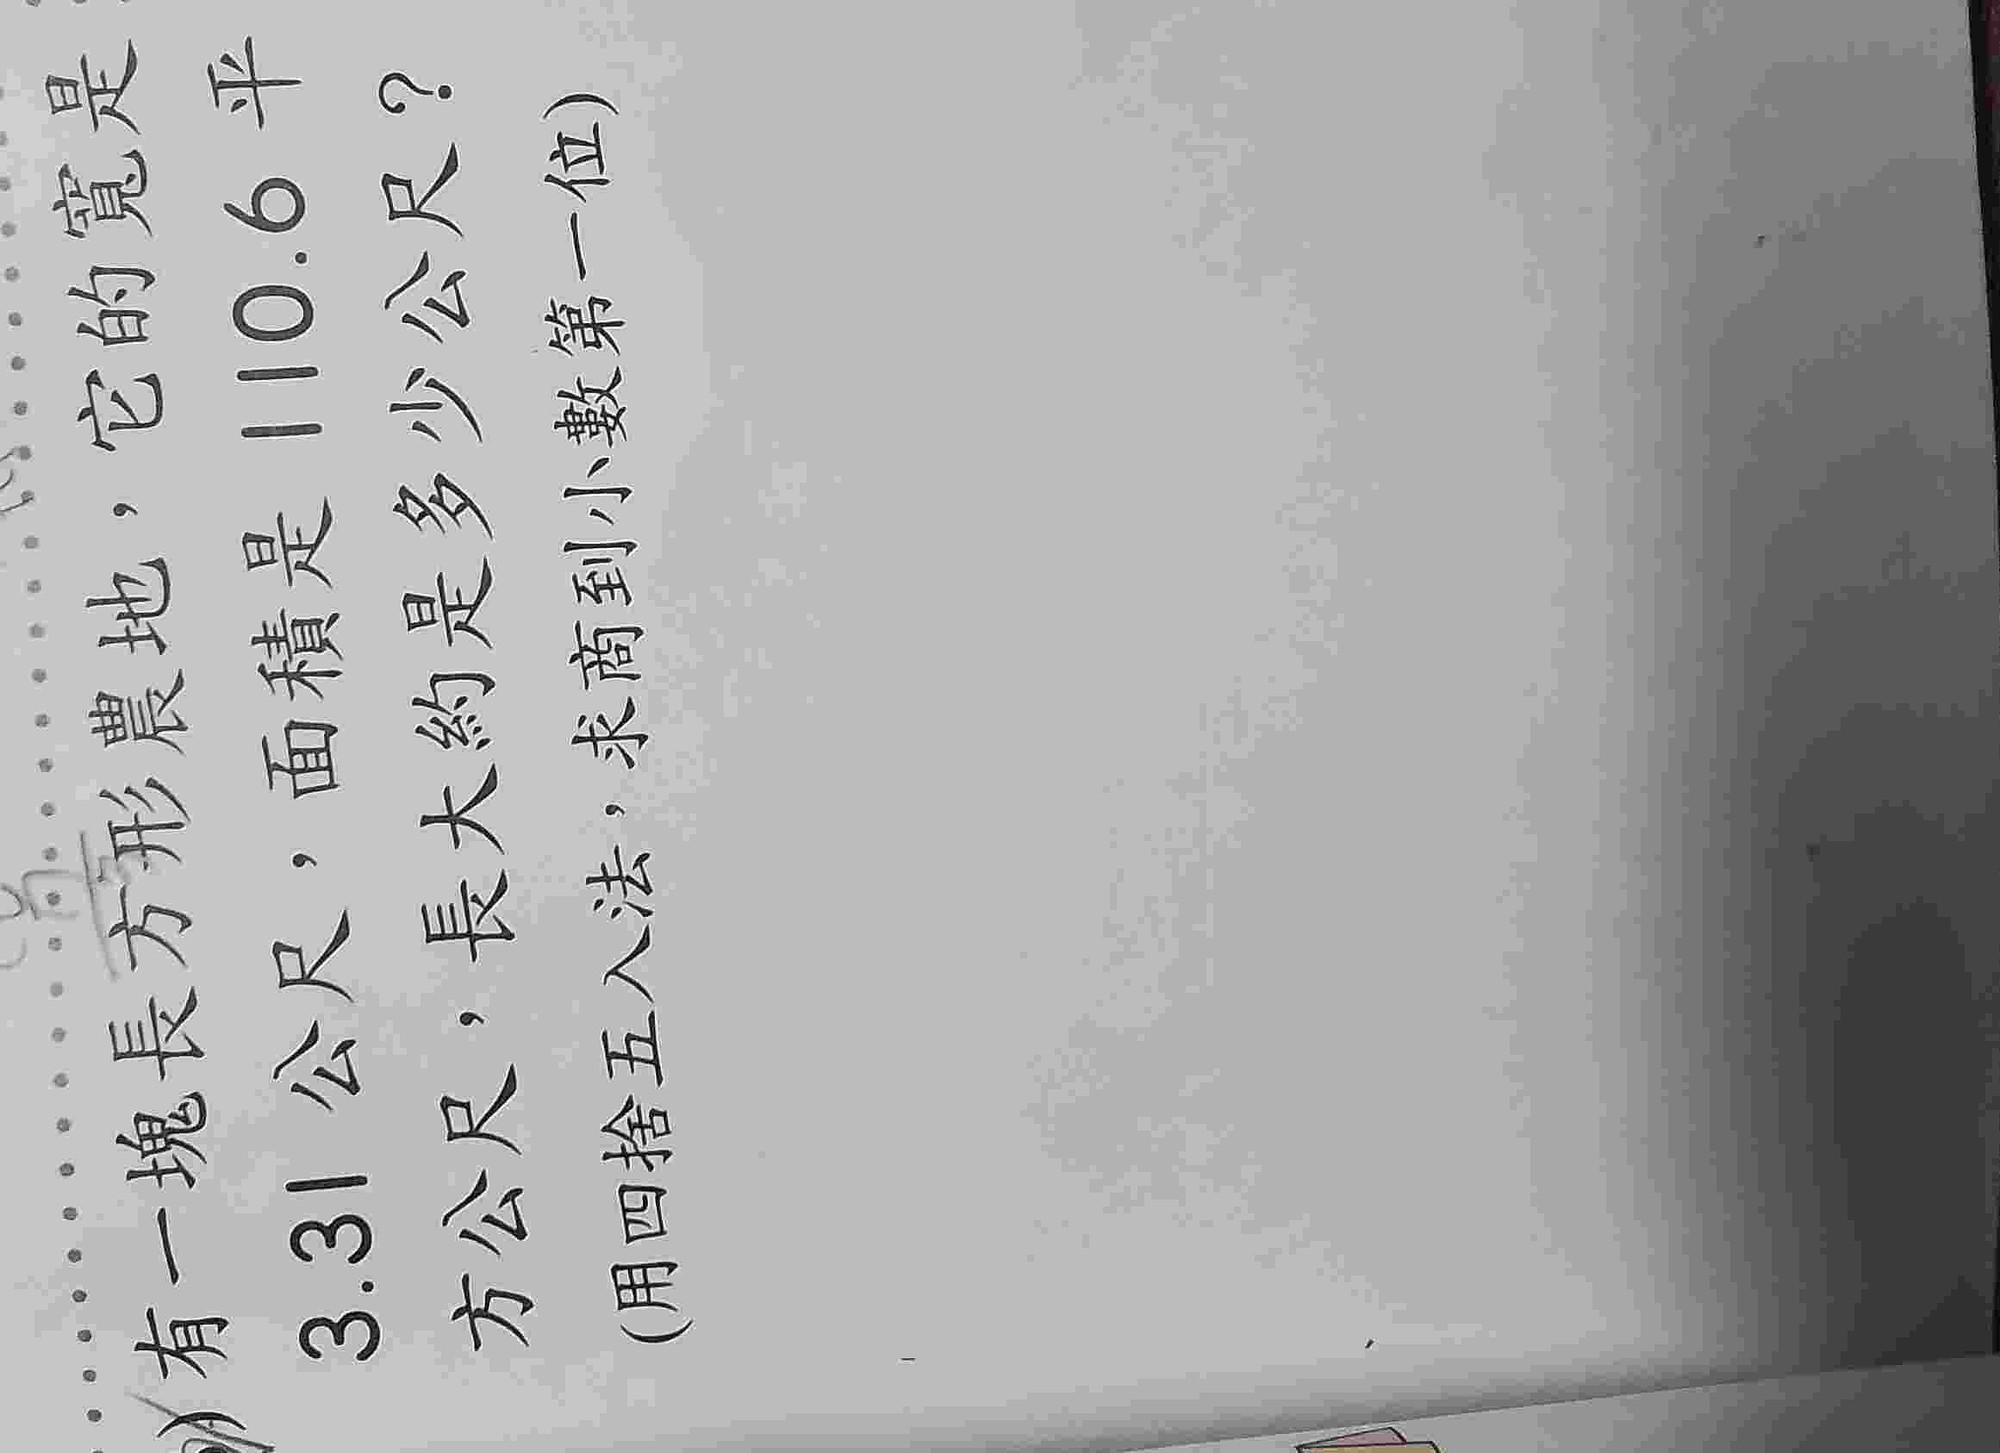 有一塊長方形農地，它的寬是
3.31 公尺，面積是 110.6 平
方公尺，長大約是多少公尺？
(用四捨五入法，求商到小數第一位)